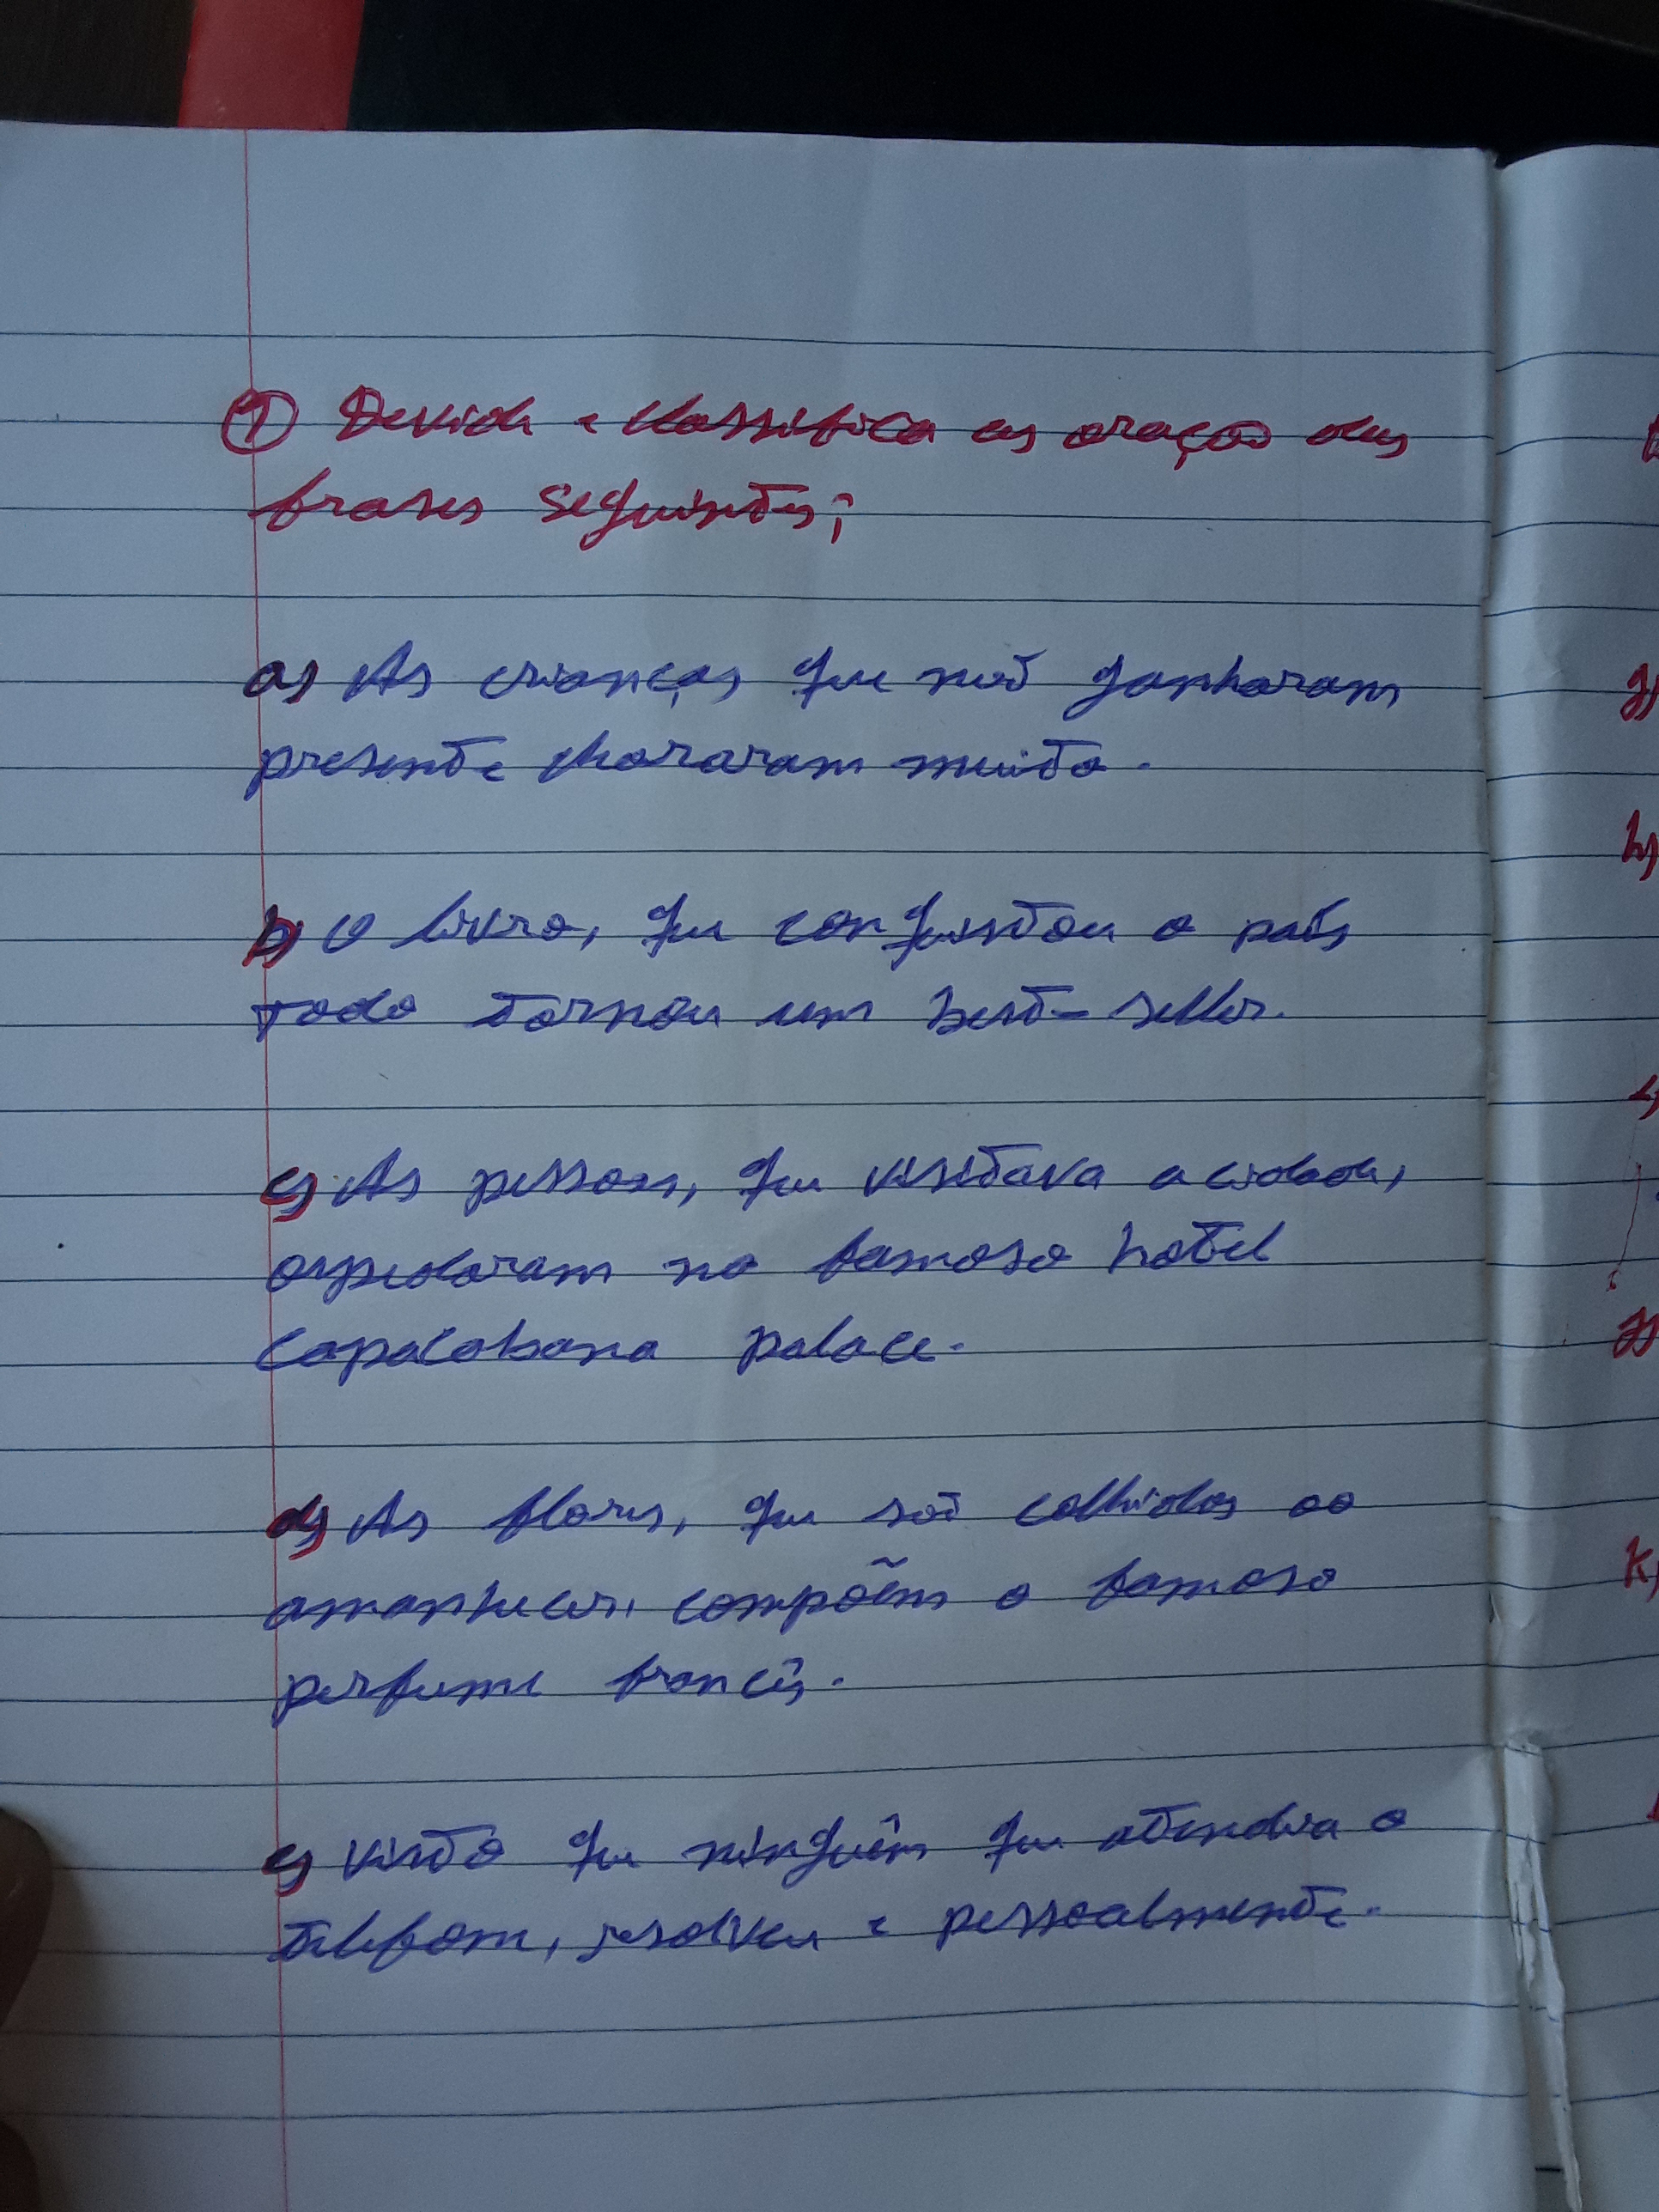 ① Devida e classifica as oração das
frases seguintes;
a) As crianças que não ganharam
presente choraram muito.
b) O livro, que conquistou o país
todo tornou um best-seller.
c) As pessoas, que visitava a cidade,
ospedaram no famoso hotel
copacabana palace.
d) As flores, que são colhidas ao
amanhecer, compõem o famoso
perfume francês.
e) visto que ninguém que atendia o
telefone, resolveu e pessoalmente.
g)
h)
k)